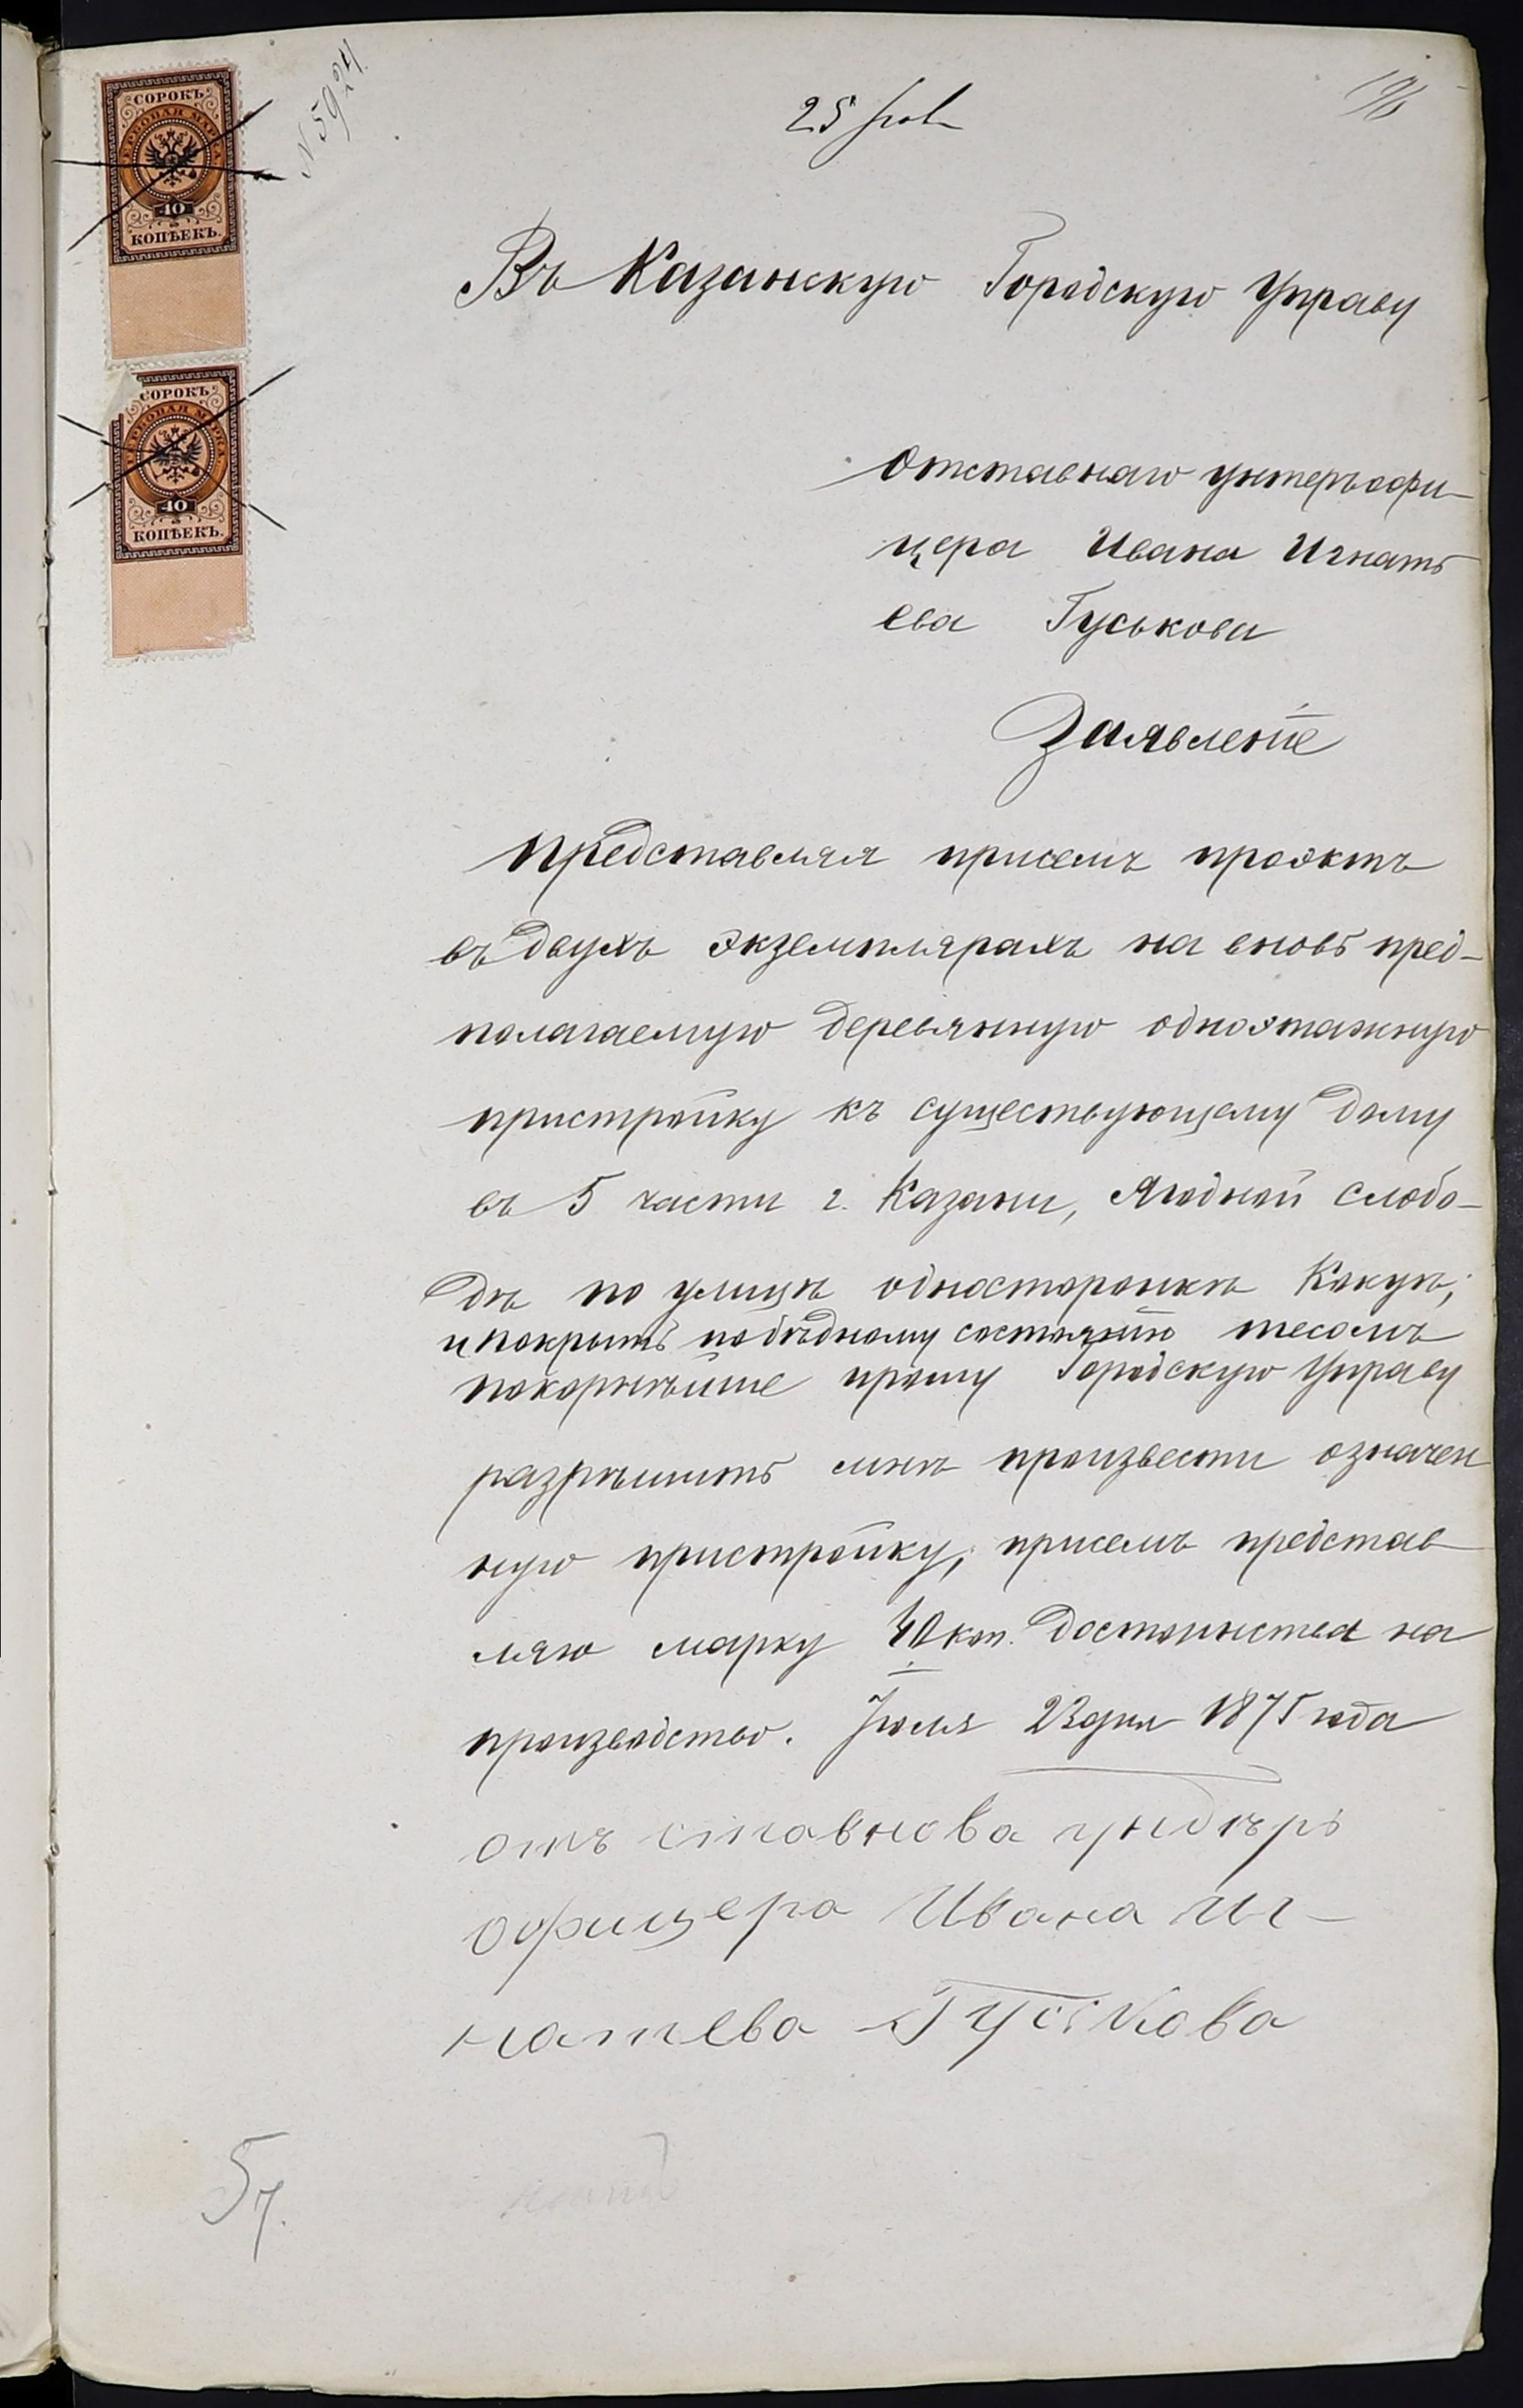 СОРОКЪ
ГЕРБОВАЯ МАРКА
40
КОПѢЕКЪ.
СОРОКЪ
ГЕРБОВАЯ МАРКА
40
КОПѢЕКЪ.
N 5924
25 Іюл
Въ Казанскую Городскую Управу
Отставнаго унтеръ офи-
цера Ивана Игнать
ева Гуськова
Заявленіе
Представляя присемъ проэктъ
въ двухъ экземплярахъ на вновь пред-
полагаемую деревянную одноэтажную
пристройку къ существующему дому
въ 5 части г. Казани, Ягодной слобо-
дѣ по улицѣ односторонкѣ Кокуѣ,
и покрыть по бѣдному состоянію тесомъ
покорнѣйше прошу Городскую Управу
разрѣшить мнѣ произвести означен
ную пристройку, присемъ представ
ляю марку 40 коп. достоинства на
производство. Іюля 23 дня 1875 года
отъ ставнова ундѣръ
офицера Ивана Иг-
натева Гуськова
5ч.